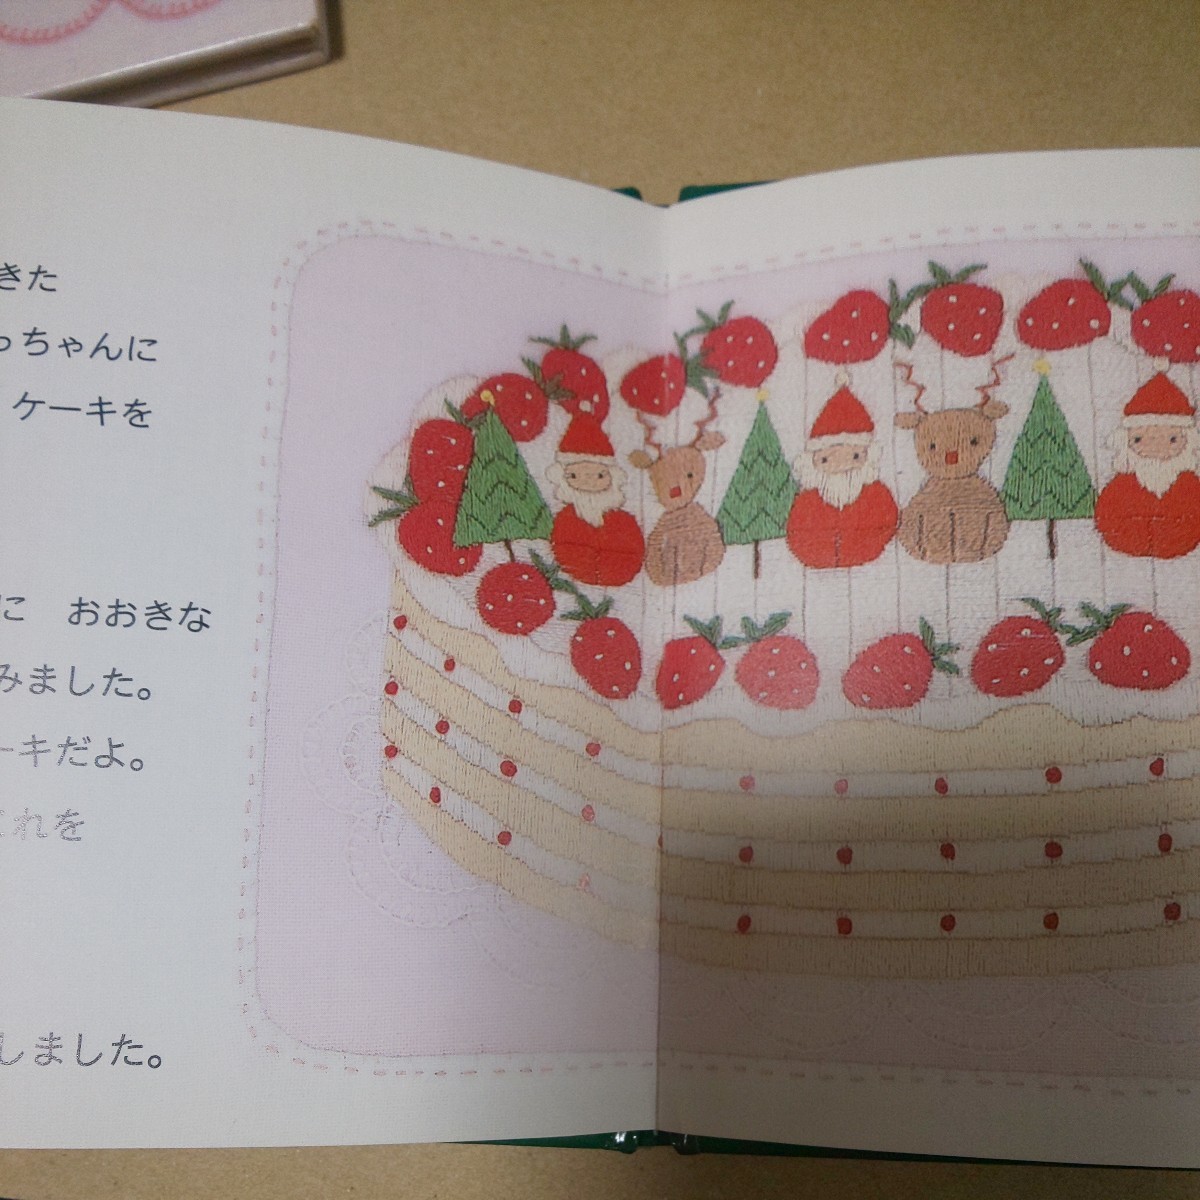 きた
っちゃんに
ケーキを
に　おおきな
みました。
ーキだよ。
れを
しました。